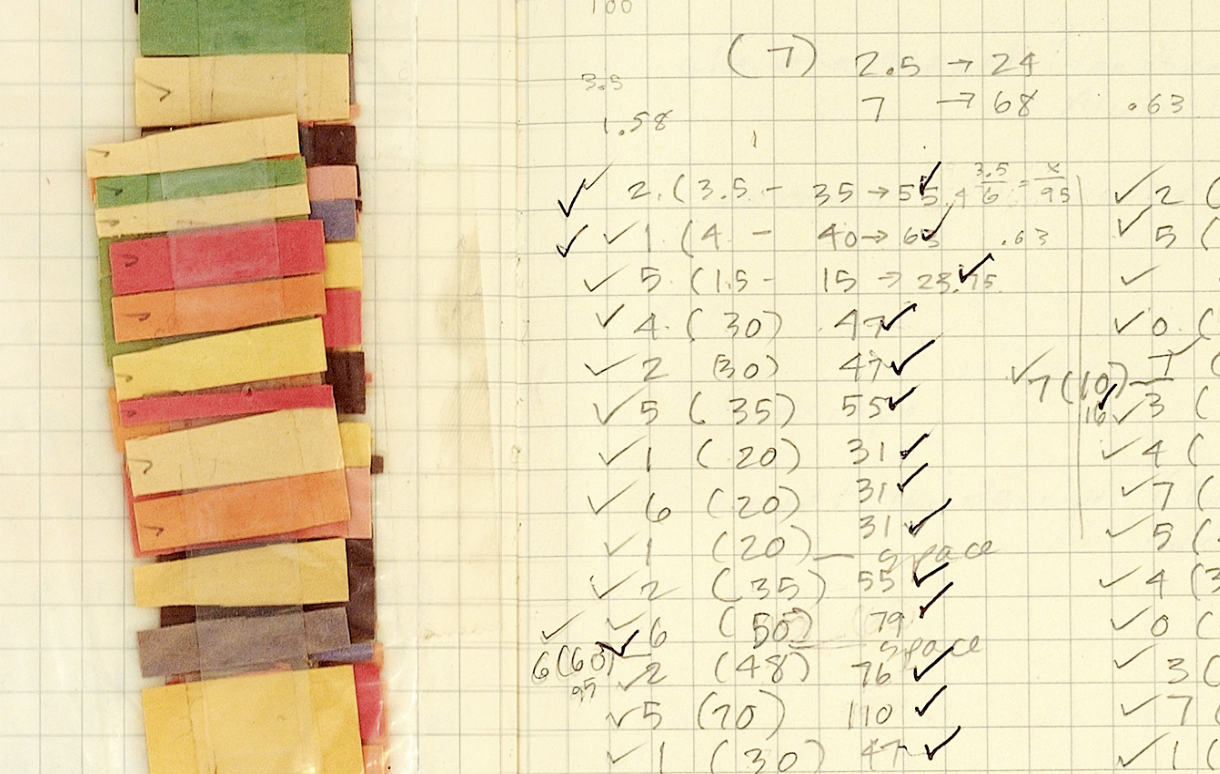 100
(7) 2.5 → 24
3.5
7 → 68 .63
1.58
1
✓✓ 2. (3.5 - 35 → 55 ✓ .4 3.5/6 = x/95 ✓ 2 (
✓✓ 1 (4 - 40 → 63 ✓ .63 ✓ 5 (
✓ 5 (1.5 - 15 → 23.75 ✓ ✓
✓ 4. (30) 47 ✓ ✓ 0 (
✓ 2 (30) 47 ✓ ✓ 7 (10) — 7 ✓ (
✓ 5 (35) 55 ✓ 16 ✓ ✓ 3 (
✓ 1 (20) 31 ✓ ✓ 4 (
✓ 6 (20) 31 ✓ ✓ 7 (
✓ 1 (20) 31 ✓ ✓ 5 (
— space
✓ 2 (35) 55 ✓ ✓ 4 (3
✓ ✓ 6 (50) 79 ✓ ✓ 0 (
— space
6 (60) ✓
95
✓ 2 (48) 76 ✓ ✓ 3 (
✓ 5 (70) 110 ✓ ✓ 7 (
✓ 1 (30) 47 ✓ ✓ 1 (